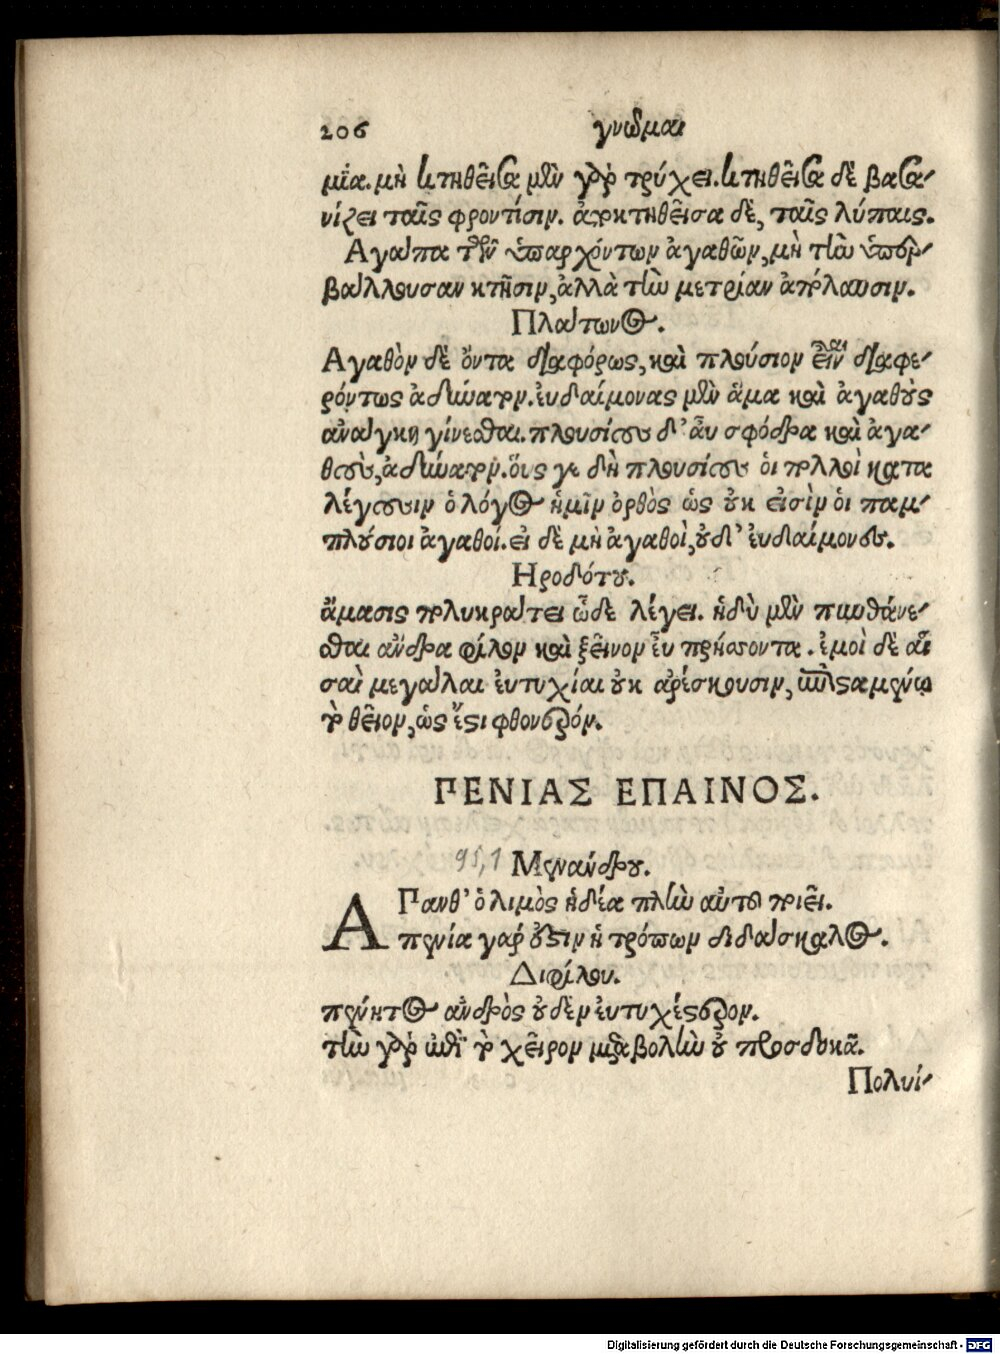 206 γνῶμαι
μία. μὴ κτηθεῖσα μὲν γὰρ τρύχει. κτηθεῖσα δὲ βασα-
νίζει ταῖς φροντίσιν. ἀποκτηθεῖσα δὲ, ταῖς λύπαις.
Αγάπα τῶν ὑπαρχόντων ἀγαθῶν, μὴ τὴν ὑπερ-
βάλλουσαν κτῆσιν, ἀλλὰ τὴν μετρίαν ἀπόλαυσιν.
Πλάτωνος.
Αγαθὸν δὲ ὄντα διαφόρως, καὶ πλούσιον εἶναι διαφε-
ρόντως ἀδύνατον. ἐυδαίμονας μὲν ἅμα καὶ ἀγαθοὺς
ανάγκη γίνεσθαι. πλουσίους δ' ἆυ σφόδρα καὶ ἀγα-
θοὺς, ἀδύνατον. ὅυς γε δὴ πλουσίους ὁι πολλοὶ κατα
λέγουσιν ὁ λόγος ἡμῖν ὀρθὸς ὡς ουκ εἰσὶν ὁι παμ-
πλούσιοι ἀγαθοί. ει δὲ μὴ ἀγαθοὶ, ουδ' ἐυδαίμονες.
Ηροδότου.
ἄμασις πολυκράτει ὧδε λέγει. ἡδὺ μὲν πυνθάνε-
σθαι ἄνδρα φίλον καὶ ξεῖνον ἐυ πρήσσοντα. ἐμοὶ δὲ αἱ
σαὶ μεγάλαι ἐυτυχίαι ουκ αρέσκουσιν, ἐπισταμένῳ
τὸ θεῖον, ὡς ἔστι φθονερόν.
ΠΕΝΙΑΣ ΕΠΑΙΝΟΣ.
95,1 Μενάνδρου.
ΑΠανθ' ὁ λιμὸς ἡδέα πλὴν αὑτοῦ ποιεῖ.
πενία γάρ ἐστιν ἡ τρόπων διδάσκαλος.
Διφίλου.
πένητος ανδρὸς ουδὲν ἐυτυχέστερον.
τὴν γὰρ ἐπὶ τὸ χεῖρον μεταβολὴν ου προσδοκᾷ.
Πολυί-
Digitalisierung gefördert durch die Deutsche Forschungsgemeinschaft - DFG